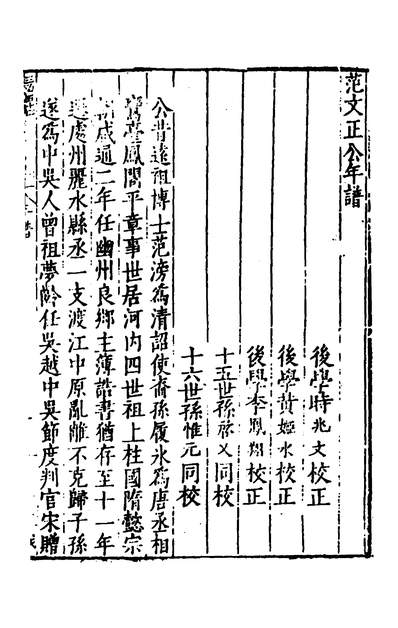 范文正公年譜
後學時兆文校正
後學黃姬水校正
後學李鳳翔校正
十五世孫啟乂同校
十六世孫惟元同校
公昔遠祖博士范滂為清詔使裔孫履冰為唐丞相
鸞臺鳳閣平章事世居河內四世祖上柱國隋懿宗
朝咸通二年任幽州良鄉主薄誥書猶存至十一年
遷處州麗水縣丞一支渡江中原亂離不克歸子孫
遂為中吳人曾祖夢齡任吳越中吳節度判官宋贈